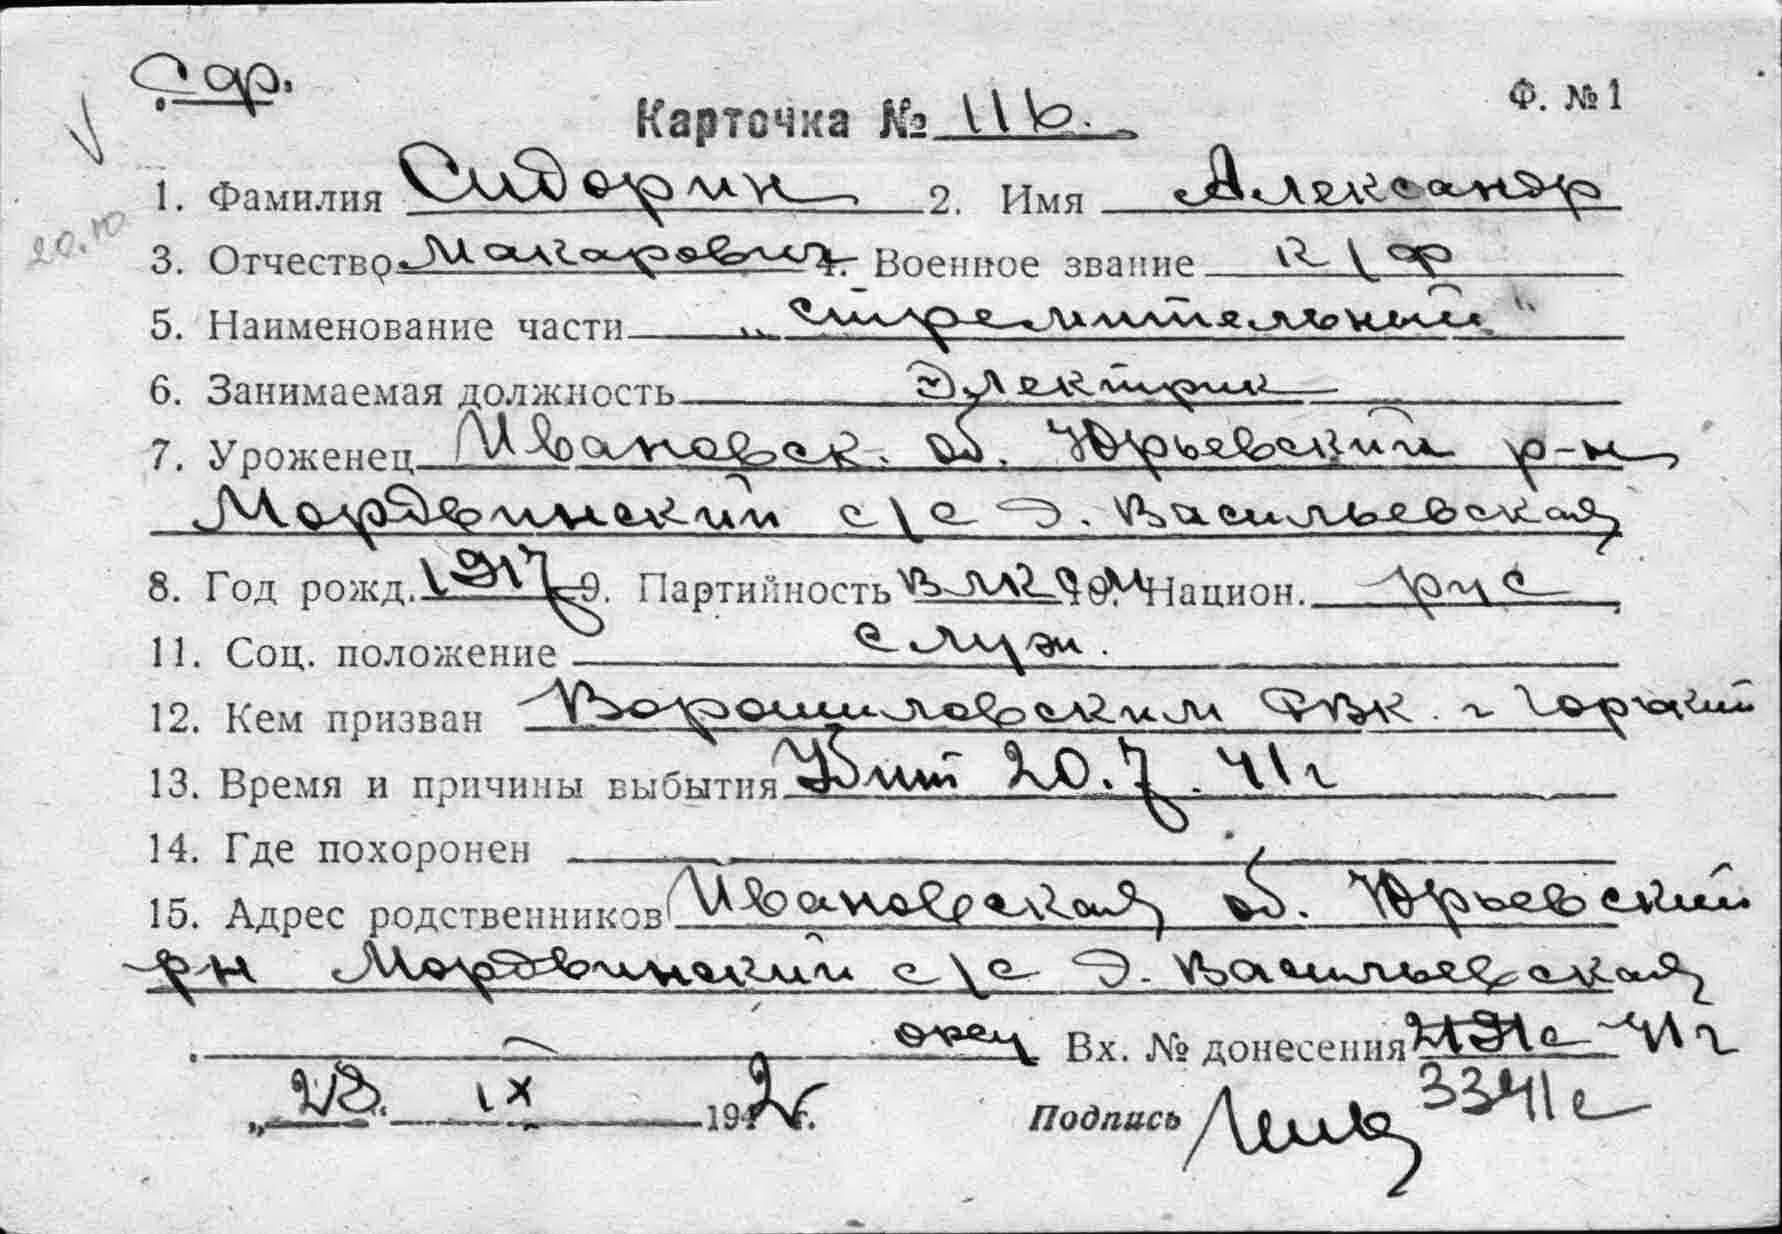 С ф.
Карточка № 116. Ф. № 1
1. Фамилия Сидорин 2. Имя Александр
20.10
3. Отчество Макарович 4. Военное звание к/ф
5. Наименование части „Стремительный"
6. Занимаемая должность Электрик
7. Уроженец Ивановск. об. Юрьевский р-н
Мордвинский с/с д. Васильевская
8. Год рожд. 1917 9. Партийность ВЛКСМ 10. Национ. рус
11. Соц. положение служ.
12. Кем призван Ворошиловским РВК. г Горький
13. Время и причины выбытия Убит 20.7.41г
14. Где похоронен
15. Адрес родственников Ивановская об. Юрьевский
рн Мордвинский с/с д. Васильевская
отец Вх. № донесения 2191с 41г
„28" IX 1942г. Подпись 3341с